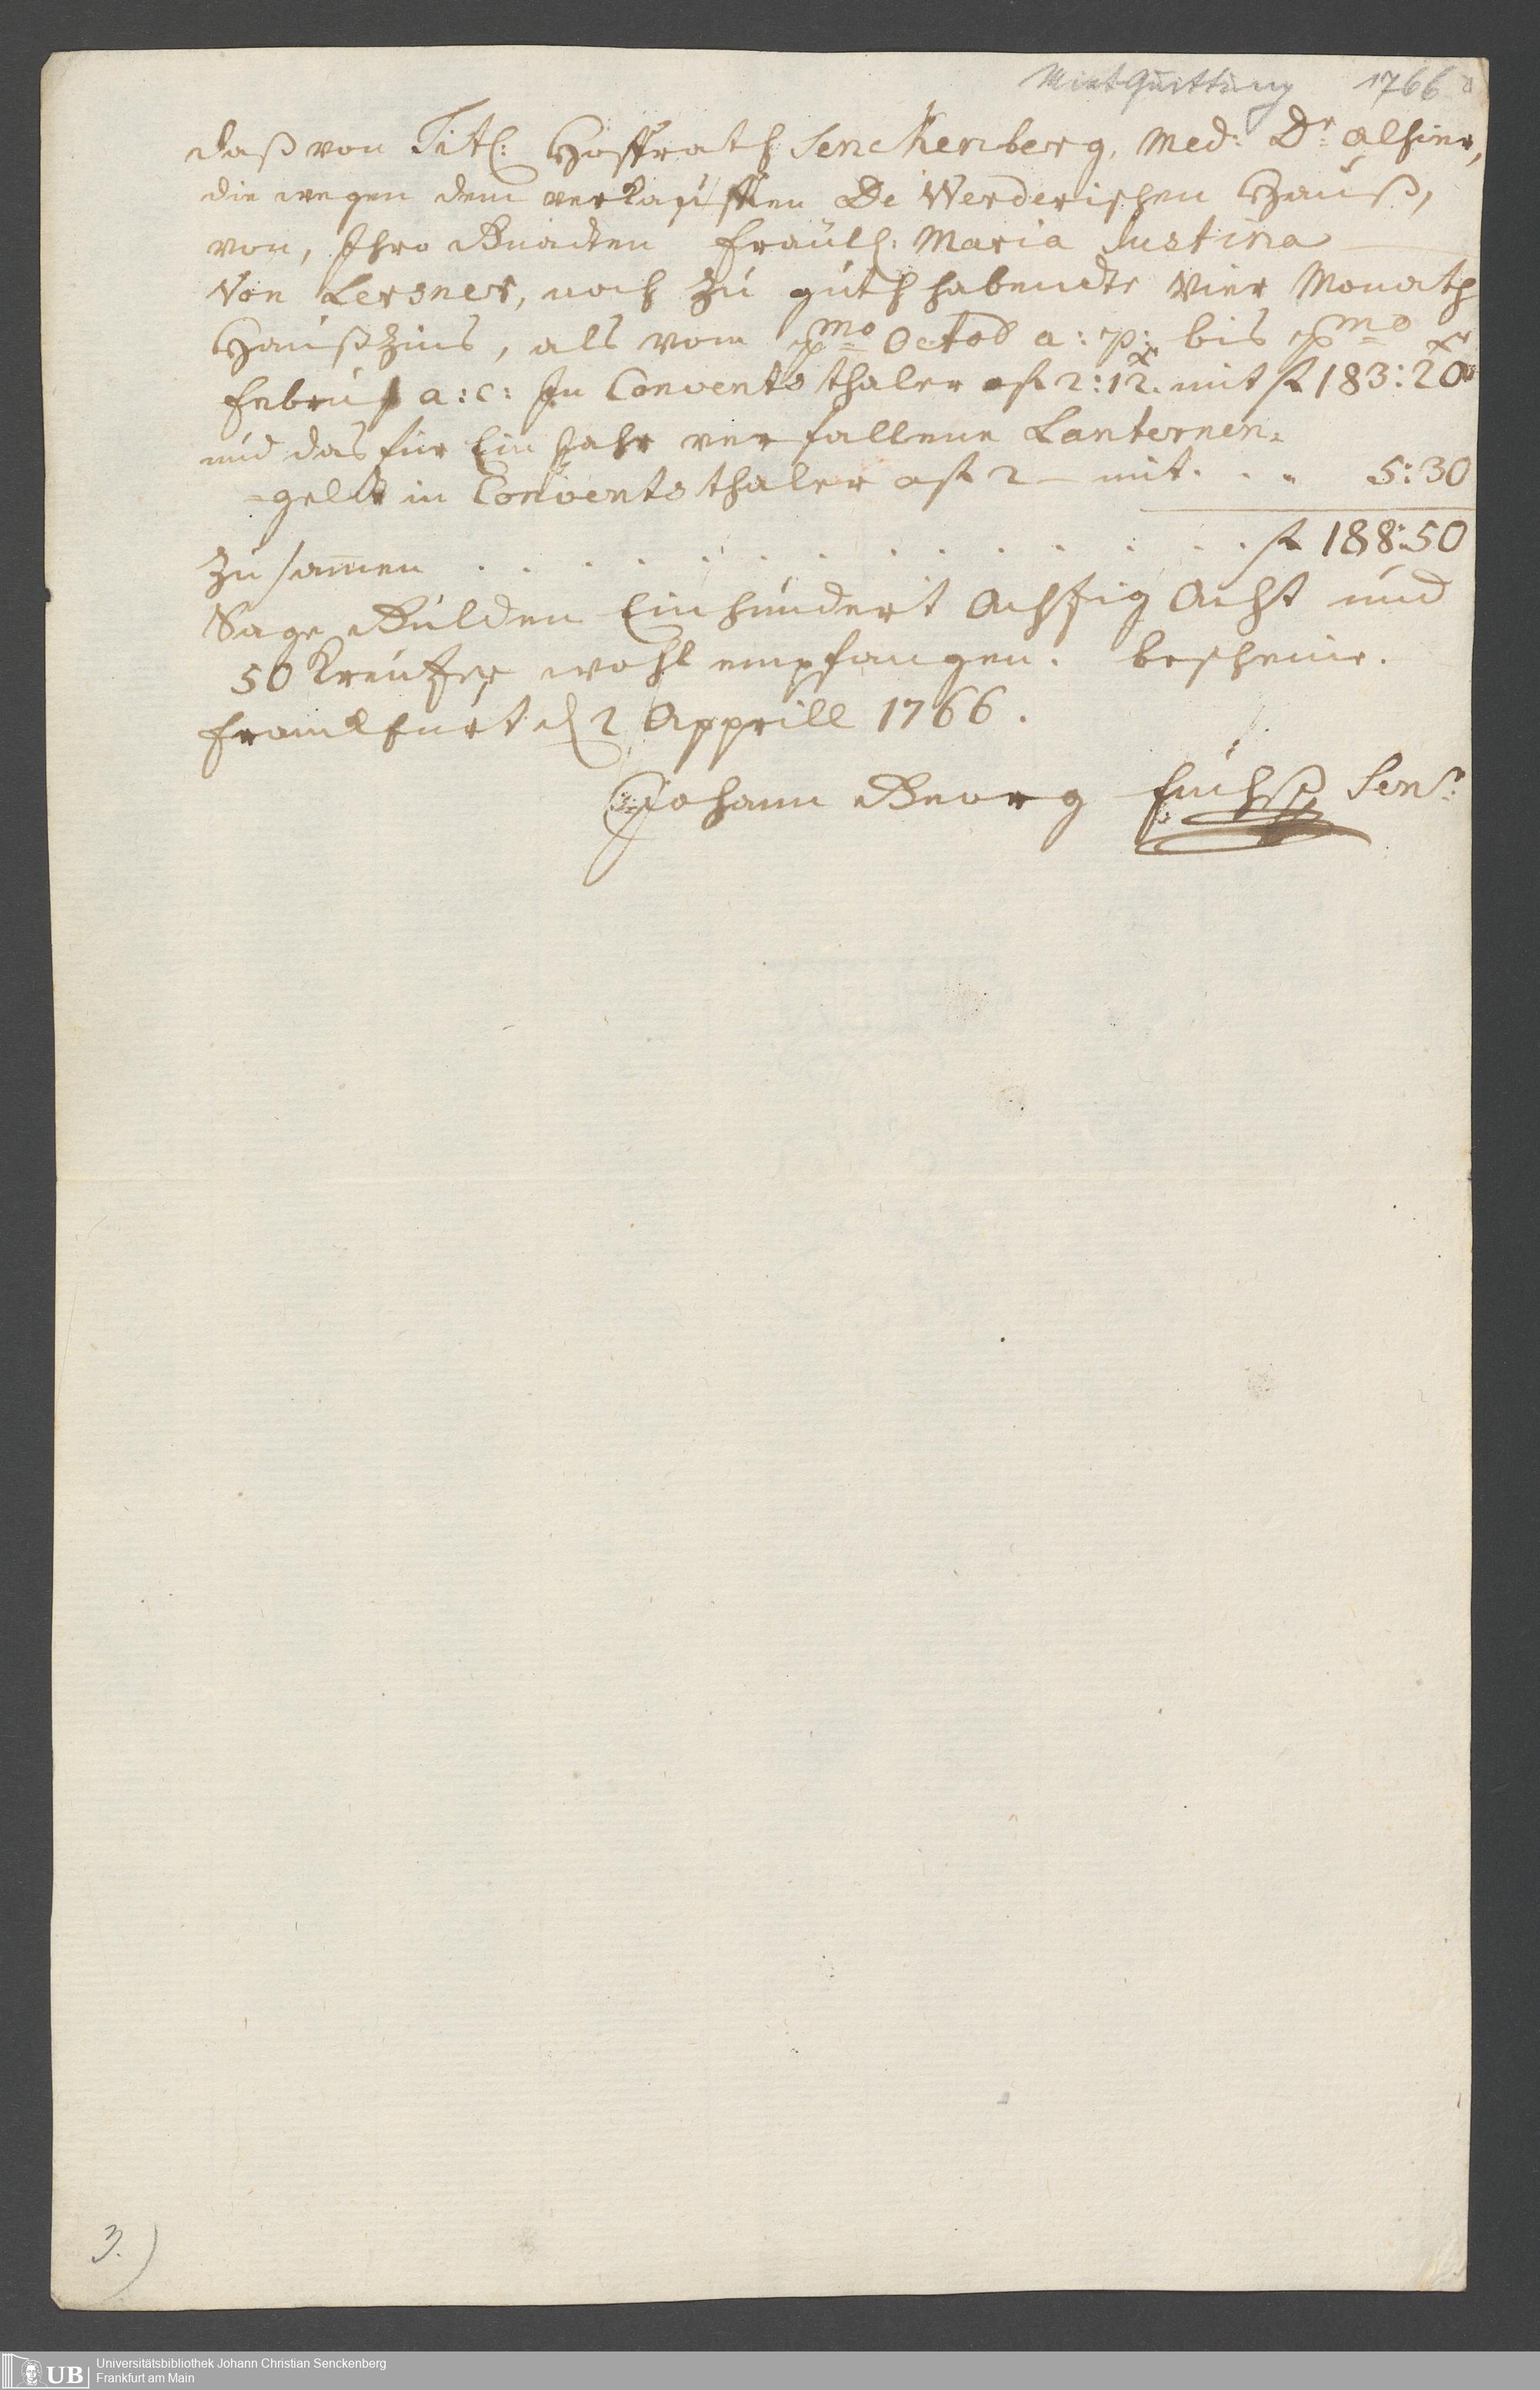 MietQuittung 1766
Daß von Titl: Hoffrath Senckenberg, Med: Dr: alhier,
die wegen dem verkaufften De Werderischen Hauß,
von, Ihro Gnadten Fräulh: Maria Justina
Von Lersner, noch zu guth habendte Vier Monath
Haußzins, als vom pmo Octob a: p: bis pmo
Februj a: c: In Convents thaler a f 2: 12 xr. mit f 183: 20 xr
und das für Ein Jahr verfallene Lanternen-
-geldt in Convents thaler a f 2 — mit . . . 5: 30
Zusamen . . . . . . . . . . . . . f 188: 50
Sage Gulden Einhundert Achtzig Acht und
50 Kreutzer wohl empfangen. bescheine.
Franckfurt d 2 Apprill 1766.
Johann Georg Fuchß Senr:
3.)
UB Universitätsbibliothek Johann Christian Senckenberg
Frankfurt am Main